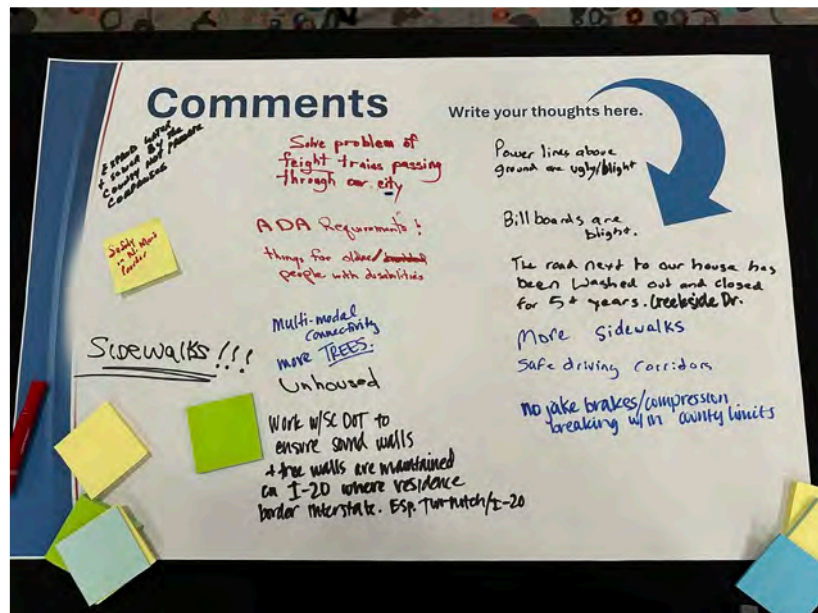 Comments
Write your thoughts here.
Expand water
+ sewer by the
County not private
companies
Safety
in N. Main
Corridor
Sidewalks!!!
Solve problem of
feight trains passing
through our city
ADA Requirements!
things for older/
people with disabilities
Multi-modal
connectivity
more TREES.
Unhoused
Work w/SC DOT to
ensure sound walls
+ tree walls are maintained
on I-20 where residence
border interstate. Esp. Two notch/I-20
Power lines above
ground are ugly/blight
Bill boards are
blight.
The road next to our house has
been washed out and closed
for 5+ years. Creekside Dr.
More Sidewalks
Safe driving corridors
no jake brakes/compression
breaking w/in county limits